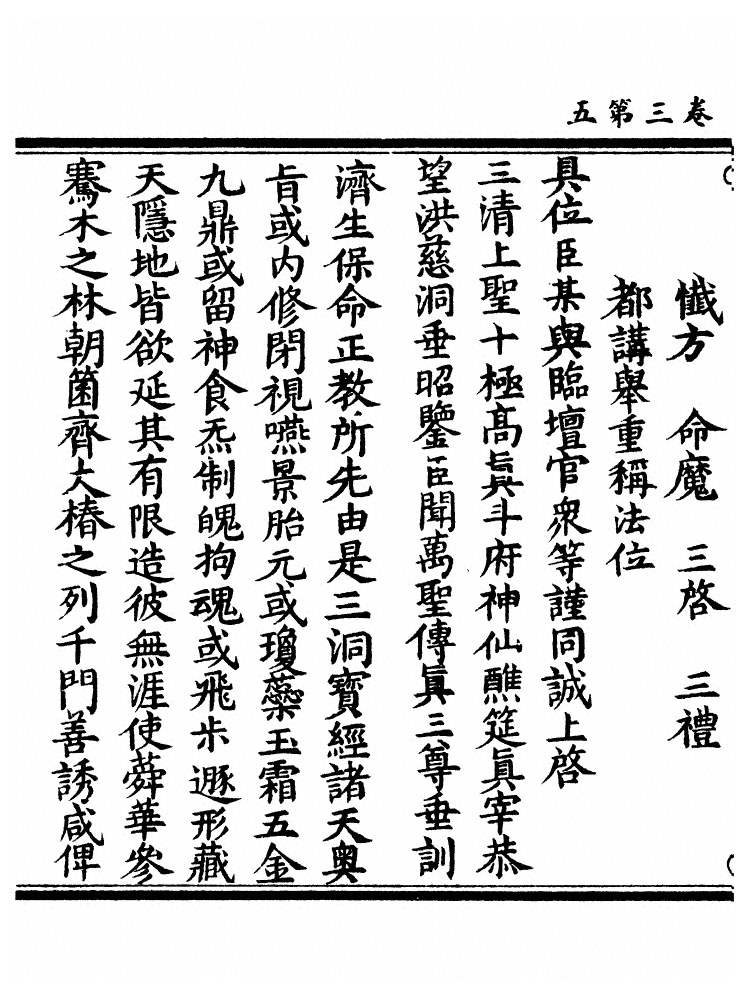 卷三第五
懺方　命魔　三啓　三禮
都講舉重稱法位
具位臣某與臨壇官衆等謹同誠上啓
三清上聖十極高眞斗府神仙醮筵眞宰恭
望洪慈洞垂昭鑒臣聞萬聖傳眞三尊垂訓
濟生保命正教所先由是三洞寶經諸天奥
旨或内修閉視嚥景胎元或瓊蘂玉霜五金
九鼎或留神食炁制魄拘魂或飛步遯形藏
天隱地皆欲延其有限造彼無涯使蕣華參
騫木之林朝菌齊大椿之列千門善誘咸俾